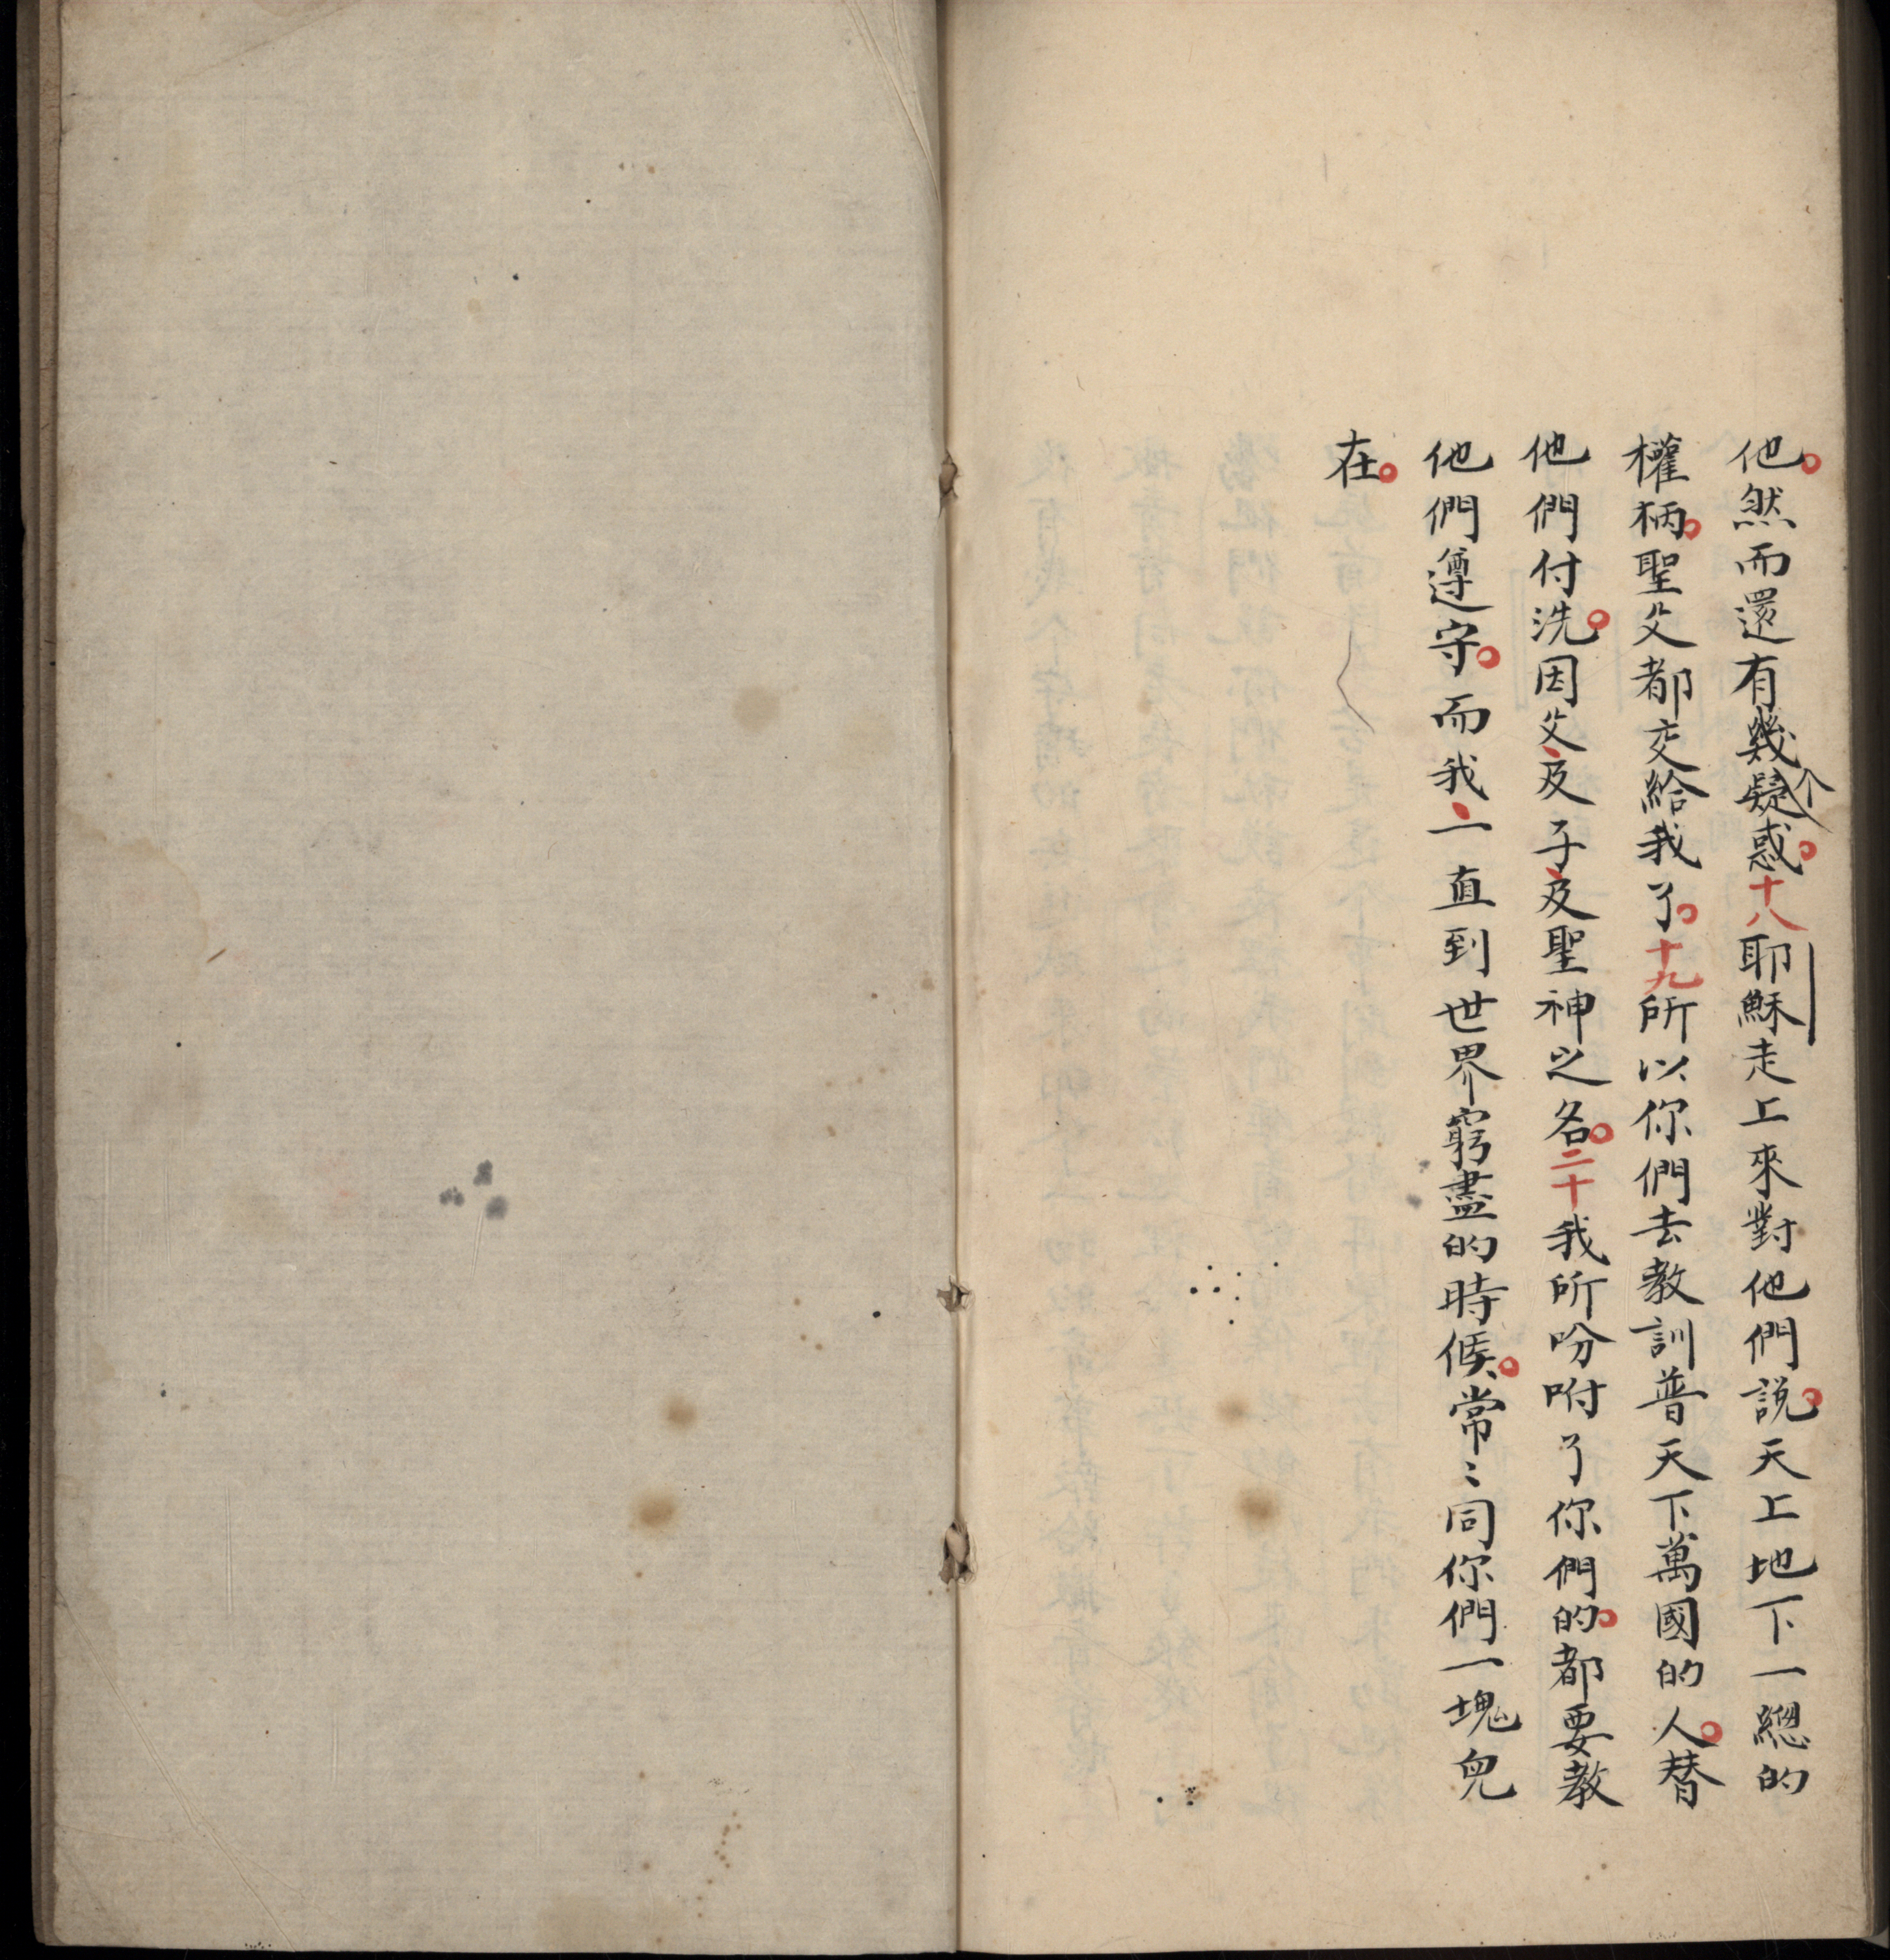 他。然而還有幾个疑惑。十八耶穌走上來對他們說。天上地下一緫的
權柄。聖父都交給我了。十九所以你們去教訓普天下萬國的人。替
他們付洗。因父、及子、及聖神之名。二十我所吩咐了你們的。都要教
他們遵守。而我、一直到世界窮盡的時候。常〻同你們一塊兒
在。